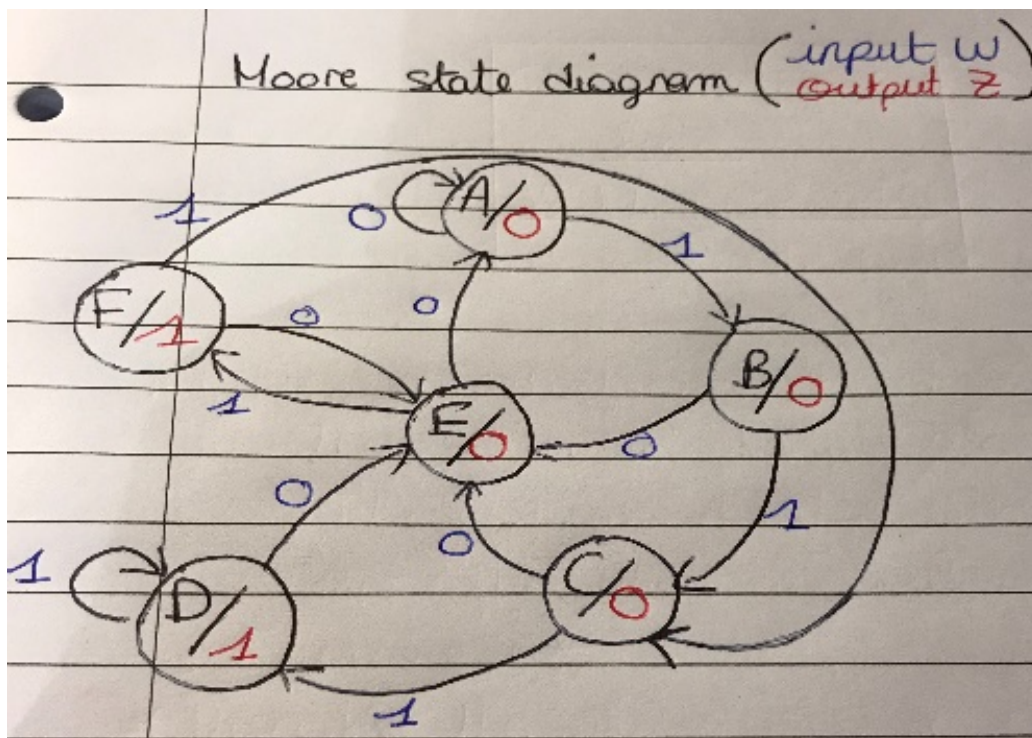 Moore state diagram (input w
output z)
1
0
A/0
1
F/1
0
0
B/0
1
E/0
0
0
1
0
1
C/0
D/1
1